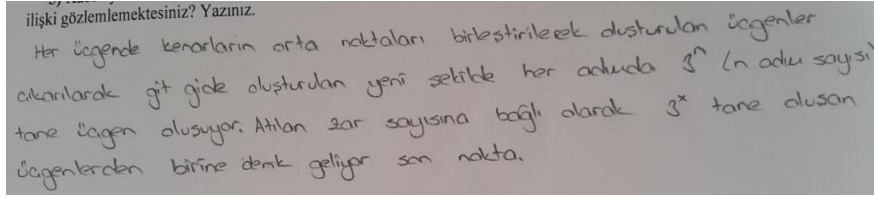 ilişki gözlemlemektesiniz? Yazınız.
Her üçgende kenarların orta noktaları birleştirilerek oluşturulan üçgenler
çıkarılarak git gide oluşturulan yeni şekilde her adımda 3ⁿ (n adım sayısı)
tane üçgen oluşuyor. Atılan zar sayısına bağlı olarak 3ˣ tane oluşan
üçgenlerden birine denk geliyor son nokta.